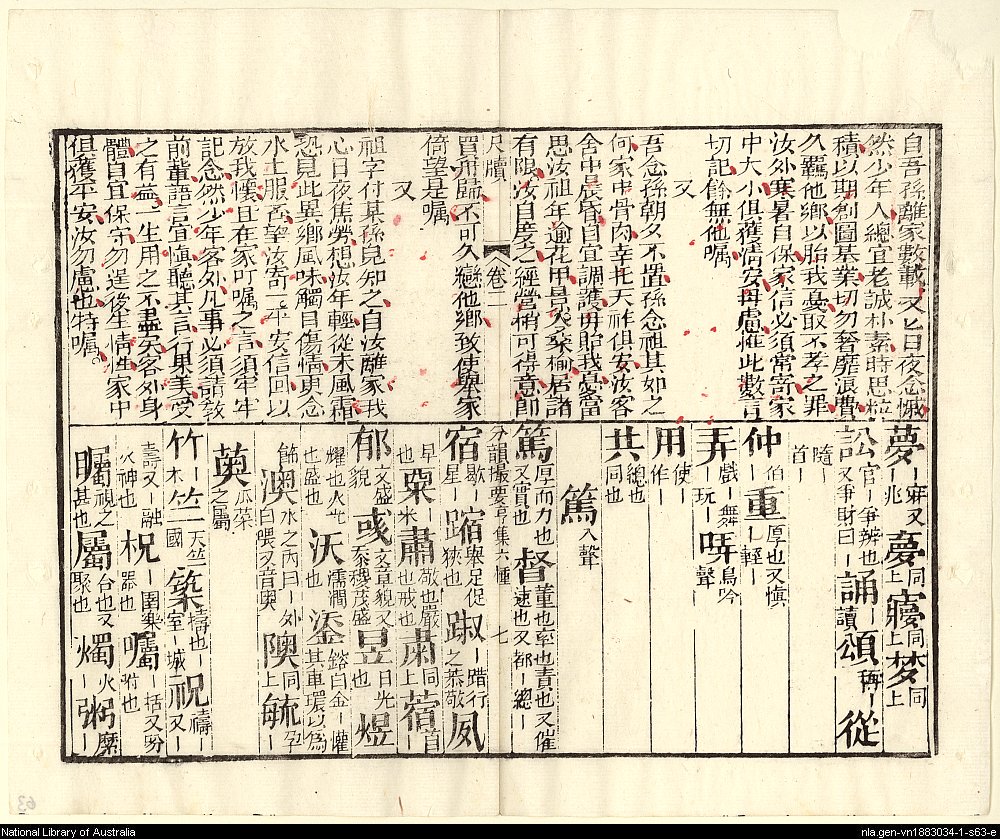 自吾孫離家數載又乜日夜念
然少年人總宜老誠朴素時思粒
積以期創圖基業切勿奢靡浪費
久羈他鄉以貽我憂取不孝之罪
汝外寒暑自保家信必須常寄家
中大小俱獲淸安毋慮惟此數言
切記餘無他囑
又
吾念孫朝夕不置孫念祖其如之
何家中骨肉幸托天祚俱安汝客
舍中晨昏自宜調護毋貽我憂當
思汝祖年逾花甲景入桑榆居諸
有限汝自度之經營稍可得意卽
尺牘 卷二
買舟歸不可久戀他鄉致使舉家
倚望是囑
又
祖字付某孫見知之自汝離家我
心日夜焦勞想汝年輕從未風霜
恐見此異鄉風味觸目傷情更念
水土服否望汝寄一平安信回以
放我懷且在家叮囑之言須牢牢
記念然少年客外凡事必須請敎
前輩語言宜愼聽其言行果美受
之有益一生用之不盡矣客外身
體自宜保守勿逞後生情性家中
俱獲平安汝勿慮也特囑。
夢｜寐又｜兆 夣同上 㝱同上 梦同上
訟官｜爭辨也又爭財曰｜ 誦｜讀 頌稱｜ 從
隨｜首｜
仲伯｜ 重厚也又愼也輕｜
弄戲｜玩｜ 哢｜舞鳥吟聲
用使｜作｜
共總也同也
篤入聲
篤厚而力也又實也 督董也率也責也又催速也又都｜總｜
分韻撮要亨集六種 七
宿歇｜星｜ 蹜舉足促狹也 踧｜踖行之恭敬 夙
早｜也 粟｜米也 肅敬也嚴也戒也 肃同上 蓿首｜
郁文盛貌 彧文章貌又黍稷茂盛 昱日光也 煜
耀也火光也盛也 沃濡潤也 鋈鎔白金｜灌其車環以爲
飾 澳水之內曰｜外曰隈又音奧 隩同上 毓孕｜
薁瓜菜之屬
竹｜木 竺天竺國 築擣也｜室｜城 祝禱｜又｜
壽又｜融火神也 柷｜圉樂器也 囑｜咐也 ｜括又
矚視之甚也 屬｜台也又聚也 燭｜火 粥糜｜
National Library of Australia
nla.gen-vn1883034-1-s63-e